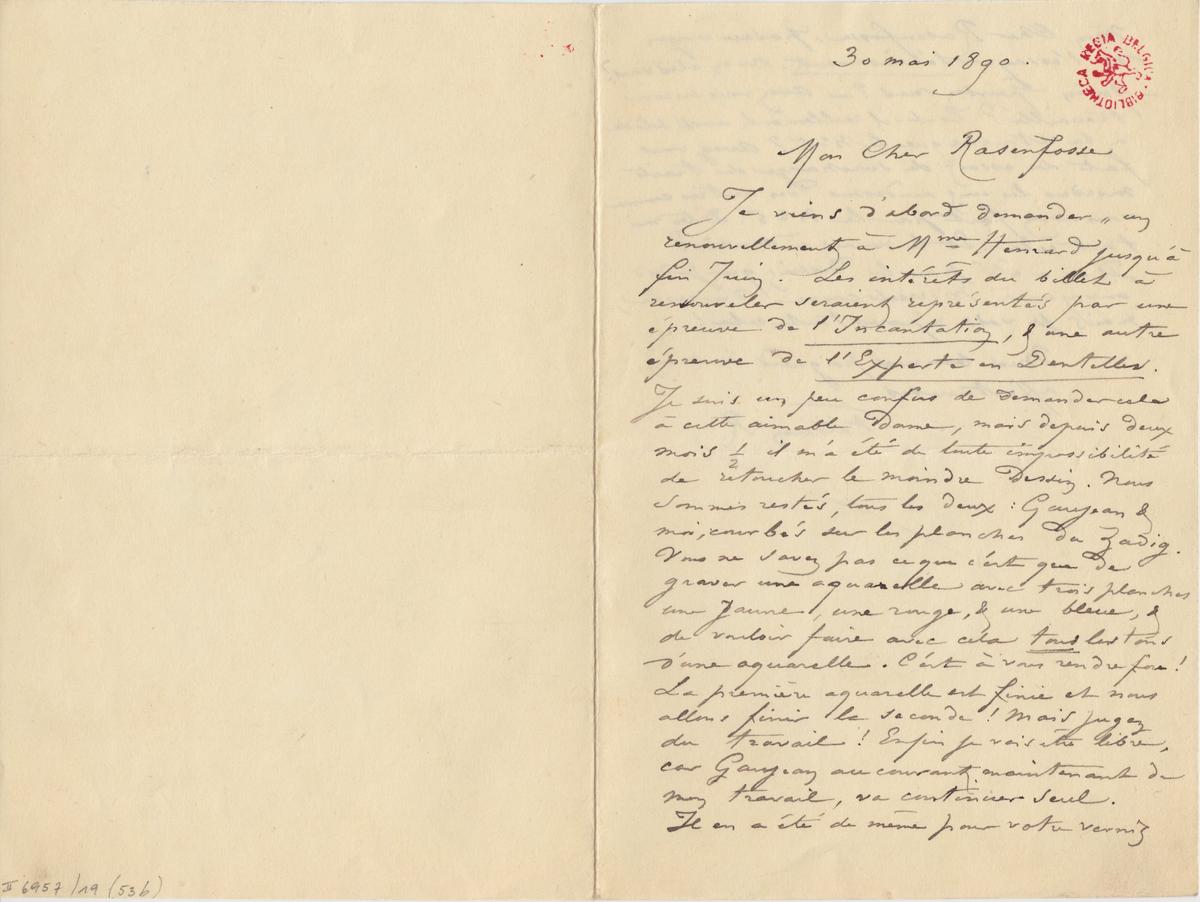 30 mai 1890.
BIBLIOTHECA REGIA BELGICA
Mon Cher Rasenfosse
Je viens d'abord demander „ un
renouvellement à Mme Henrard jusqu'à
fin Juin. Les intérêts du billet à
renouveler seraient représentés par une
épreuve de l'Incantation, & une autre
épreuve de l'Experte en Dentelles.
Je suis un peu confus de demander cela
à cette aimable Dame, mais depuis deux
mois ½ il m'a été de toute impossibilité
de retoucher le moindre Dessin. Nous
sommes restés, tous les deux : Gaujean &
moi, courbés sur les planches du Zadig.
Vous ne savez pas ce que c'est que de
graver une aquarelle avec trois planches
une Jaune, une rouge, & une bleue, &
de vouloir faire avec cela tous les tons
d'une aquarelle. C'est à vous rendre fou !
La première aquarelle est finie et nous
allons finir la seconde ! Mais jugez
du travail ! Enfin je vais être libre,
car Gaujean au courant, maintenant de
mon travail, va continuer seul.
Il en a été de même pour votre vernis
II 6957 / 19 (53b)